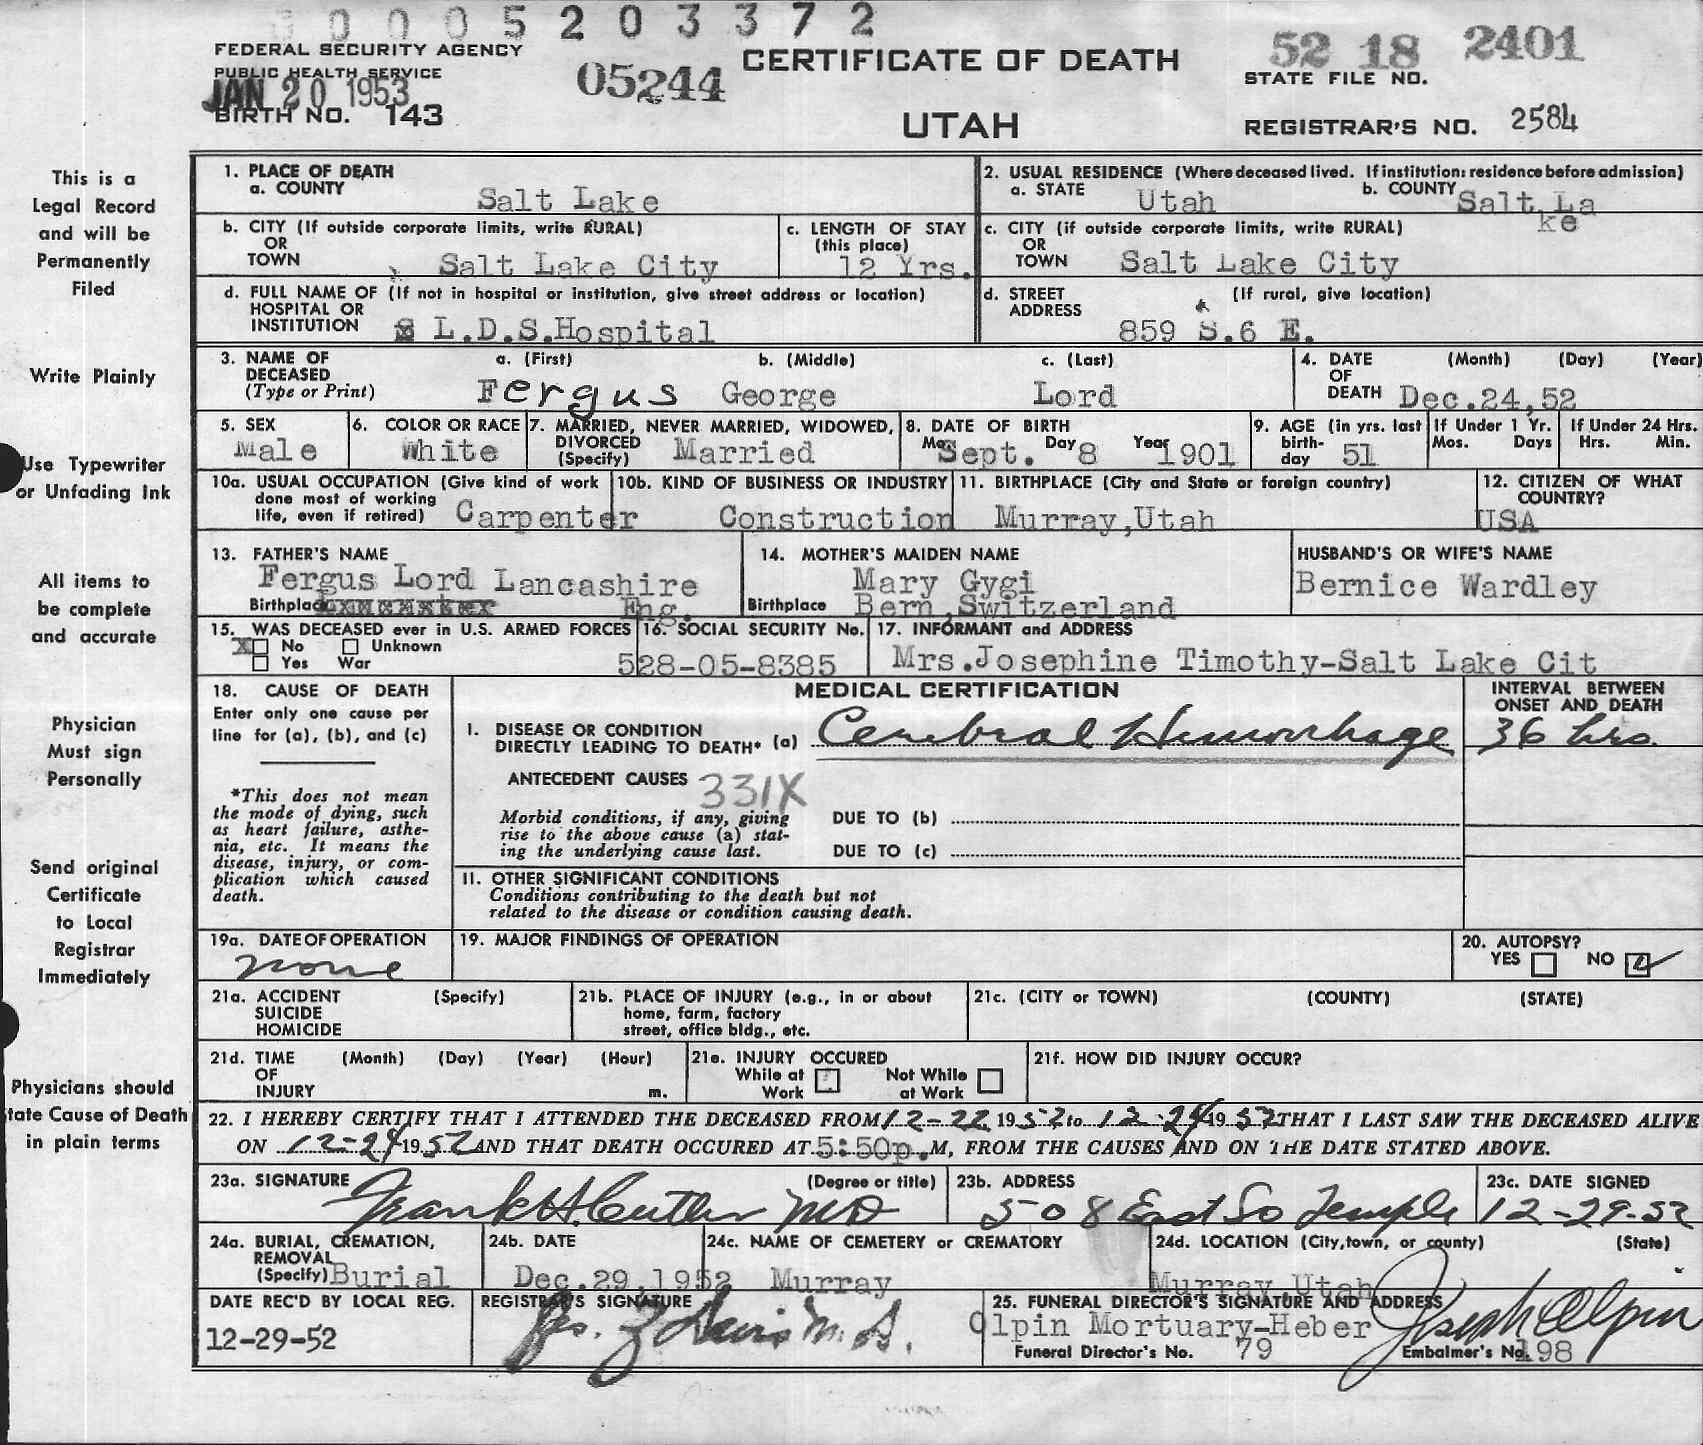 0 0 0 5 2 0 3 3 7 2
FEDERAL SECURITY AGENCY
PUBLIC HEALTH SERVICE
JAN 20 1953
BIRTH NO. 143
05244
CERTIFICATE OF DEATH
UTAH
52 18 2401
STATE FILE NO.
REGISTRAR'S NO. 2584
This is a
Legal Record
and will be
Permanently
Filed
Write Plainly
Use Typewriter
or Unfading Ink
All items to
be complete
and accurate
Physician
Must sign
Personally
Send original
Certificate
to Local
Registrar
Immediately
Physicians should
tate Cause of Death
in plain terms
1. PLACE OF DEATH
a. COUNTY Salt Lake
2. USUAL RESIDENCE (Where deceased lived. If institution: residence before admission)
a. STATE Utah b. COUNTY Salt La
ke
b. CITY (If outside corporate limits, write RURAL)
OR
TOWN Salt Lake City
c. LENGTH OF STAY
(this place)
12 Yrs.
c. CITY (if outside corporate limits, write RURAL)
OR
TOWN Salt Lake City
d. FULL NAME OF (If not in hospital or institution, give street address or location)
HOSPITAL OR
INSTITUTION L.D.S.Hospital
d. STREET (If rural, give location)
ADDRESS
859 S.6 E.
3. NAME OF a. (First) b. (Middle) c. (Last)
DECEASED
(Type or Print) Fergus George Lord
4. DATE (Month) (Day) (Year)
OF
DEATH Dec.24,52
5. SEX
Male
6. COLOR OR RACE
White
7. MARRIED, NEVER MARRIED, WIDOWED,
DIVORCED
(Specify) Married
8. DATE OF BIRTH
Mo. Sept. Day 8 Year 1901
9. AGE (in yrs. last
birth-
day 51
If Under 1 Yr.
Mos. Days
If Under 24 Hrs.
Hrs. Min.
10a. USUAL OCCUPATION (Give kind of work
done most of working
life, even if retired) Carpenter
10b. KIND OF BUSINESS OR INDUSTRY
Construction
11. BIRTHPLACE (City and State or foreign country)
Murray,Utah
12. CITIZEN OF WHAT
COUNTRY?
USA
13. FATHER'S NAME
Fergus Lord Lancashire
Birthplace Eng.
14. MOTHER'S MAIDEN NAME
Mary Gygi
Birthplace Bern,Switzerland
HUSBAND'S OR WIFE'S NAME
Bernice Wardley
15. WAS DECEASED ever in U.S. ARMED FORCES
X No Unknown
Yes War
16. SOCIAL SECURITY No.
528-05-8385
17. INFORMANT and ADDRESS
Mrs.Josephine Timothy-Salt Lake Cit
18. CAUSE OF DEATH
Enter only one cause per
line for (a), (b), and (c)
*This does not mean
the mode of dying, such
as heart failure, asthe-
nia, etc. It means the
disease, injury, or com-
plication which caused
death.
MEDICAL CERTIFICATION
I. DISEASE OR CONDITION
DIRECTLY LEADING TO DEATH* (a) Cerebral Hemorrhage
INTERVAL BETWEEN
ONSET AND DEATH
36 hrs.
ANTECEDENT CAUSES 331X
Morbid conditions, if any, giving
rise to the above cause (a) stat-
ing the underlying cause last.
DUE TO (b)
DUE TO (c)
II. OTHER SIGNIFICANT CONDITIONS
Conditions contributing to the death but not
related to the disease or condition causing death.
19a. DATE OF OPERATION
none
19. MAJOR FINDINGS OF OPERATION
20. AUTOPSY?
YES NO
21a. ACCIDENT (Specify)
SUICIDE
HOMICIDE
21b. PLACE OF INJURY (e.g., in or about
home, farm, factory
street, office bldg., etc.
21c. (CITY or TOWN) (COUNTY) (STATE)
21d. TIME (Month) (Day) (Year) (Hour)
OF
INJURY m.
21e. INJURY OCCURED
While at Not While
Work at Work
21f. HOW DID INJURY OCCUR?
22. I HEREBY CERTIFY THAT I ATTENDED THE DECEASED FROM 12-22 1952 to 12-24 1952 THAT I LAST SAW THE DECEASED ALIVE
ON 12-24 1952 AND THAT DEATH OCCURED AT 5:50p.M, FROM THE CAUSES AND ON THE DATE STATED ABOVE.
23a. SIGNATURE (Degree or title)
Frank H. Cutler MD
23b. ADDRESS
508 East So Temple
23c. DATE SIGNED
12-29-52
24a. BURIAL, CREMATION,
REMOVAL
(Specify) Burial
24b. DATE
Dec.29,1952
24c. NAME OF CEMETERY or CREMATORY
Murray
24d. LOCATION (City,town, or county) (State)
Murray,Utah
DATE REC'D BY LOCAL REG.
12-29-52
REGISTRAR'S SIGNATURE
25. FUNERAL DIRECTOR'S SIGNATURE AND ADDRESS
Olpin Mortuary-Heber Joseph Olpin
Funeral Director's No. 79 Embalmer's No. 198